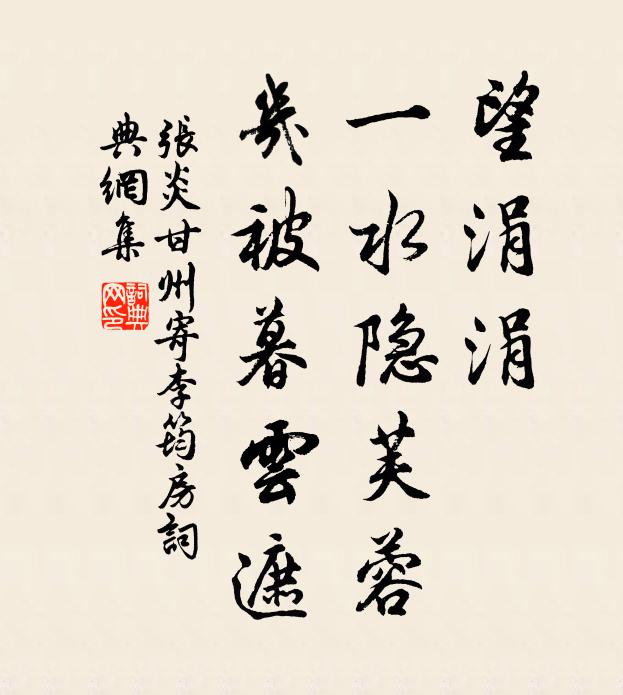 望涓涓
一水隐芙蓉
幾被暮雲遮
張炎甘州寄李筠房詞
典網集
詞典网印